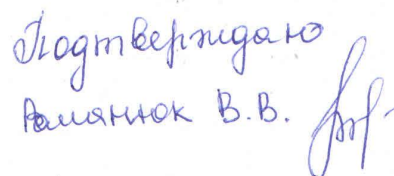 Подтверждаю
Романюк В.В.